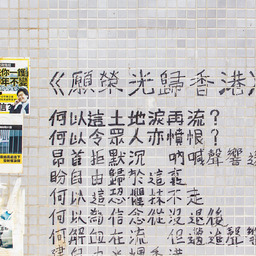 《願榮光歸香港
何以這土地淚再流？
何以令眾人亦憤恨？
昂首拒默沉 吶喊聲響透
盼自由歸於這
何以這恐懼抹不走
何以為信念從沒退後
何解血在流 但邁進聲響
年不變